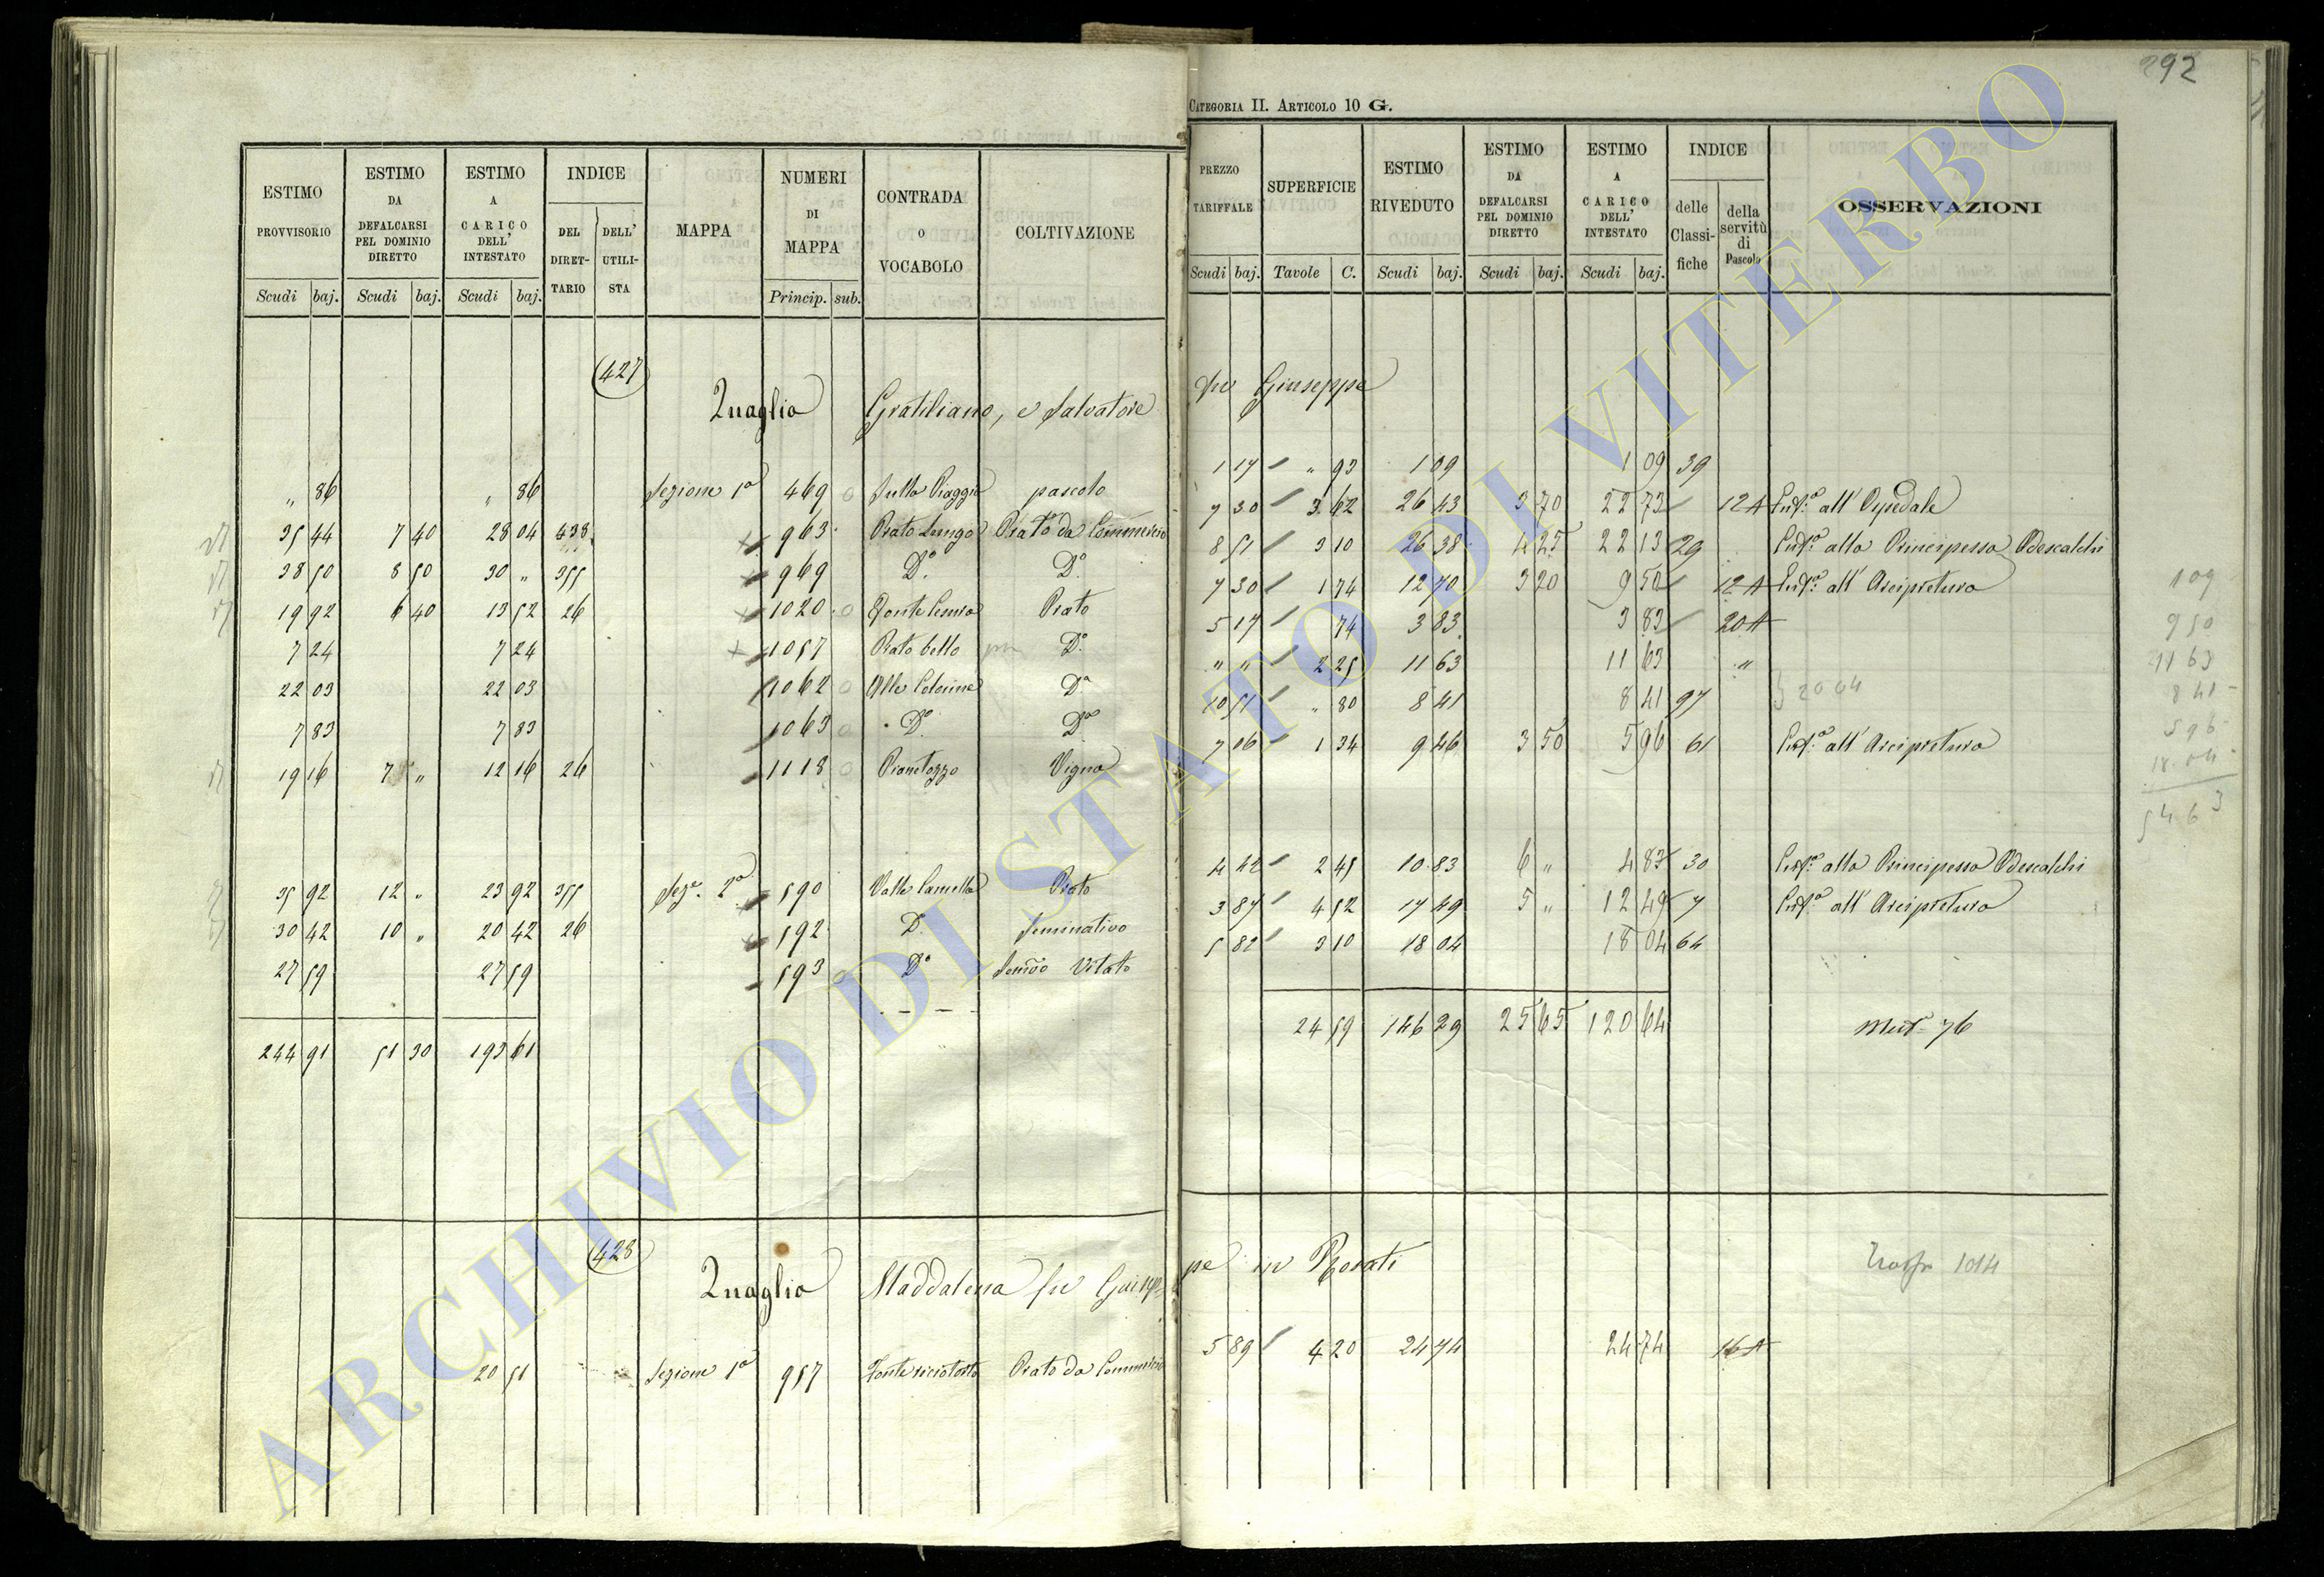 292
CATEGORIA II. ARTICOLO 10 G.
ESTIMO PROVVISORIO
ESTIMO DA DEFALCARSI PEL DOMINIO DIRETTO
ESTIMO A CARICO DELL' INTESTATO
INDICE
DEL DIRET-TARIO
DELL' UTILI-STA
MAPPA
NUMERI DI MAPPA
CONTRADA O VOCABOLO
COLTIVAZIONE
Scudi baj. Scudi baj. Scudi baj. Princip. sub.
PREZZO TARIFFALE
SUPERFICIE
ESTIMO RIVEDUTO
ESTIMO DA DEFALCARSI PEL DOMINIO DIRETTO
ESTIMO A CARICO DELL' INTESTATO
INDICE
delle Classi-fiche
della servitù di Pascolo
OSSERVAZIONI
Scudi baj. Tavole C. Scudi baj. Scudi baj. Scudi baj.
427
Quaglia Gratiliano, e Salvatore fu Giuseppe
" 86 " 86 Sezione 1a 469 Sulla Piaggia pascolo 1 17 " 93 1 09 1 09 39
35 44 7 40 28 04 438 963 Prato Lungo Prato da Commercio 7 30 3 62 26 43 3 70 22 73 12 A Enfa. all' Ospedale
38 50 8 50 30 " 355 969 Do. Do. 8 51 3 10 26 38 4 25 22 13 29 Enfa. alla Principessa Odescalchi
19 92 6 40 13 52 26 1020 Prato 7 30 1 74 12 70 3 20 9 50 12 A Enfa. all' Arcipretura
7 24 7 24 1057 Prato bello Do. 5 17 74 3 83 3 83 20 A
22 03 22 03 1062 Alle Colonne Do. " " 2 25 11 63 11 63 "
7 83 7 83 1063 Do. Do. 10 51 " 80 8 41 8 41 97
19 16 7 " 12 16 26 1118 Pianetozzo Vigna 7 06 1 34 9 46 3 50 5 96 61 Enfa. all' Arcipretura
35 92 12 " 23 92 355 Seze. 2a 590 Valle Camella Prato 4 42 2 45 10 83 6 " 4 83 30 Enfa. alla Principessa Odescalchi
30 42 10 " 20 42 26 592 Do. Seminativo 3 87 4 52 17 49 5 " 12 49 7 Enfa. all' Arcipretura
27 59 27 59 593 Do. Vitato 5 82 3 10 18 04 18 04 64
244 91 51 30 193 61 24 59 146 29 25 65 120 64 76
20 04
1 09
9 50
11 63
8 41
5 96
18 04
54 63
428
Quaglia Maddalena fu Giuseppe in Rosati
1014
20 51 Sezione 1a 957 Prato da Commercio 5 89 4 20 24 74 24 74 16 A
ARCHIVIO DI STATO DI VITERBO